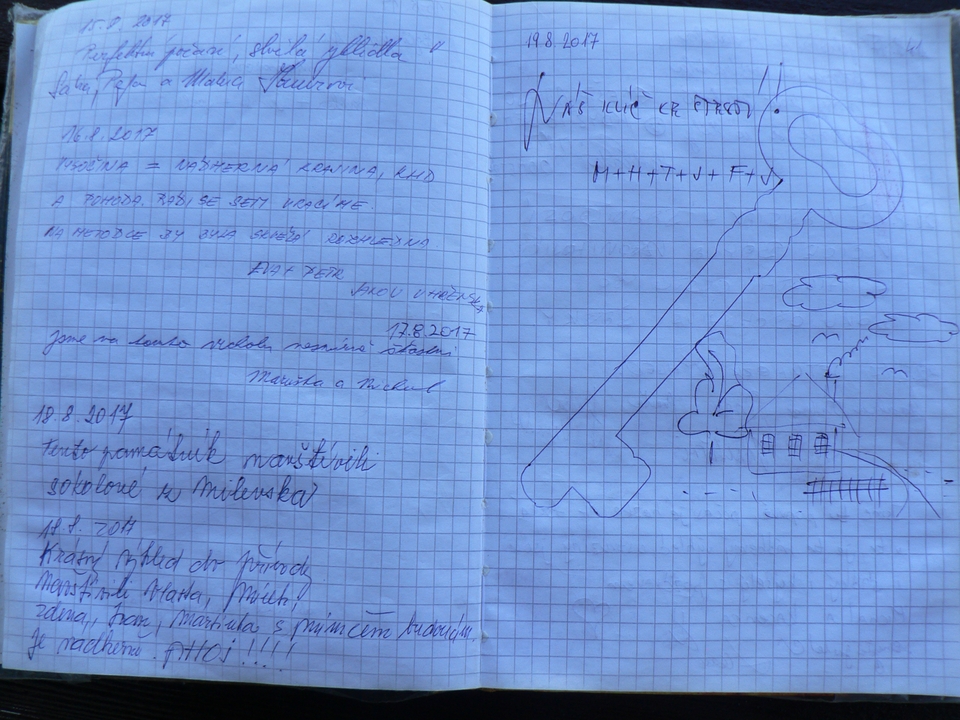 15.8. 2017
Perfektní počasí, skvělá vyhlídka
a
16.8.2017
VYSOČINA = NÁDHERNÁ KRAJINA, KLID
A POHODA. RÁDI SE SEM VRACÍME.
NA METODCE BY BYLA SKVĚLÁ ROZHLEDNA
EVA + PETR
17.8.2017
Jsme na tomto vrcholu nesmírně šťastni
Maruška a Michal
18.8.2017
Tento památník navštívili
sokolové z Milevska
18.8. 2017
Krásný výhled do přírody
Navštívili Vlasta,
Zdena, Ivan, Martinka s
Je nádherně. AHOJ!!!!
19 8 2017
NÁŠ KLÍČ KE ŠTĚSTÍ!!
M+H+T+J+F+J